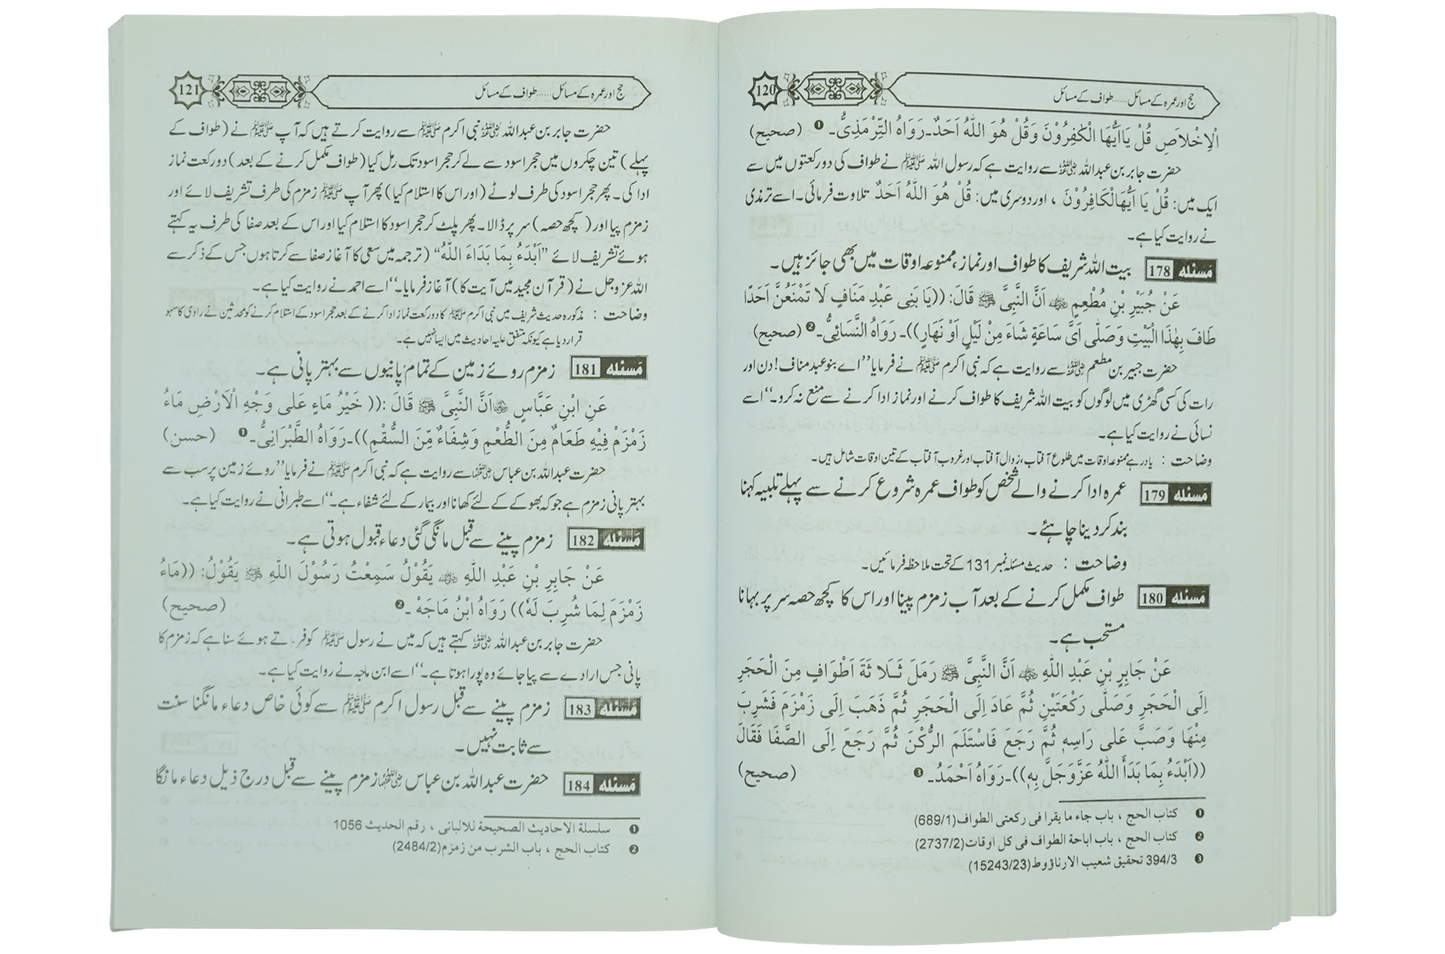 حج اور عمرہ کے مسائل..... طواف کے مسائل
120
الْاِخْلَاصِ قُلْ يَااَيُّهَا الْكٰفِرُوْنَ وَقُلْ هُوَ اللّٰهُ اَحَدٌ۔ رَوَاهُ التِّرْمَذِىُّ۔ ❶ (صحیح)
حضرت جابر بن عبداللہ رضی اللہ عنہ سے روایت ہے کہ رسول اللہ ﷺ نے طواف کی دو رکعتوں میں سے
ایک میں: قُلْ يَا اَيُّهَاالْكَافِرُوْنَ ، اور دوسری میں: قُلْ هُوَ اللّٰهُ اَحَدٌ تلاوت فرمائی۔ اسے ترمذی
نے روایت کیا ہے۔
مسئلہ 178 بیت اللہ شریف کا طواف اور نماز، ممنوعہ اوقات میں بھی جائز ہیں۔
عَنْ جُبَيْرِ بْنِ مُطْعِمٍ رضی اللہ عنہ اَنَّ النَّبِىَّ ﷺ قَالَ: ((يَا بَنِى عَبْدِ مَنَافٍ لَا تَمْنَعُنَّ اَحَدًا
طَافَ بِهٰذَا الْبَيْتِ وَصَلّٰى اَىَّ سَاعَةٍ شَاءَ مِنْ لَيْلٍ اَوْ نَهَارٍ))۔ رَوَاهُ النَّسَائِىُّ۔ ❷ (صحیح)
حضرت جبیر بن مطعم رضی اللہ عنہ سے روایت ہے کہ نبی اکرم ﷺ نے فرمایا ’’اے بنو عبد مناف! دن اور
رات کی کسی گھڑی میں لوگوں کو بیت اللہ شریف کا طواف کرنے اور نماز ادا کرنے سے منع نہ کرو۔‘‘ اسے
نسائی نے روایت کیا ہے۔
وضاحت : یاد رہے ممنوعہ اوقات میں طلوع آفتاب، زوال آفتاب اور غروب آفتاب کے تین اوقات شامل ہیں۔
مسئلہ 179 عمرہ ادا کرنے والے شخص کو طواف عمرہ شروع کرنے سے پہلے تلبیہ کہنا
بند کر دینا چاہئے۔
وضاحت : حدیث مسئلہ نمبر 131 کے تحت ملاحظہ فرمائیں۔
مسئلہ 180 طواف مکمل کرنے کے بعد آب زمزم پینا اور اس کا کچھ حصہ سر پر بہانا
مستحب ہے۔
عَنْ جَابِرِ بْنِ عَبْدِ اللّٰهِ رضی اللہ عنہ اَنَّ النَّبِىَّ ﷺ رَمَلَ ثَلَاثَةَ اَطْوَافٍ مِنَ الْحَجَرِ
اِلَى الْحَجَرِ وَصَلّٰى رَكْعَتَيْنِ ثُمَّ عَادَ اِلَى الْحَجَرِ ثُمَّ ذَهَبَ اِلٰى زَمْزَمَ فَشَرِبَ
مِنْهَا وَصَبَّ عَلٰى رَاسِهٖ ثُمَّ رَجَعَ فَاسْتَلَمَ الرُّكْنَ ثُمَّ رَجَعَ اِلَى الصَّفَا فَقَالَ
((اَبْدَءُ بِمَا بَدَأَ اللّٰهُ عَزَّوَجَلَّ بِهٖ))۔ رَوَاهُ اَحْمَدُ۔ ❸ (صحیح)
❶ کتاب الحج ، باب جاء ما یقرا فی رکعتی الطواف (689/1)
❷ کتاب الحج ، باب اباحة الطواف فی کل اوقات (2737/2)
❸ 394/3 تحقیق شعیب الارناؤوط (15243/23)
حج اور عمرہ کے مسائل..... طواف کے مسائل
121
حضرت جابر بن عبداللہ رضی اللہ عنہ نبی اکرم ﷺ سے روایت کرتے ہیں کہ آپ ﷺ نے (طواف کے
پہلے) تین چکروں میں حجر اسود سے لے کر حجر اسود تک رمل کیا (طواف مکمل کرنے کے بعد) دو رکعت نماز
ادا کی۔ پھر حجر اسود کی طرف لوٹے (اور اس کا استلام کیا) پھر آپ ﷺ زمزم کی طرف تشریف لائے اور
زمزم پیا اور (کچھ حصہ) سر پر ڈالا۔ پھر پلٹ کر حجر اسود کا استلام کیا اور اس کے بعد صفا کی طرف یہ کہتے
ہوئے تشریف لائے ’’اَبْدَءُ بِمَا بَدَاءَ اللّٰهُ‘‘ (ترجمہ میں سعی کا آغاز صفا سے کرتا ہوں جس کے ذکر سے
اللہ عزوجل نے (قرآن مجید میں آیت کا) آغاز فرمایا۔‘‘ اسے احمد نے روایت کیا ہے۔
وضاحت : مذکورہ حدیث شریف میں نبی اکرم ﷺ کا دو رکعت نماز ادا کرنے کے بعد حجر اسود کے استلام کرنے کو محدثین نے راوی کا سہو
قرار دیا ہے کیونکہ متفق علیہ احادیث میں ایسا نہیں ہے۔
مسئلہ 181 زمزم روئے زمین کے تمام پانیوں سے بہتر پانی ہے۔
عَنِ ابْنِ عَبَّاسٍ رضی اللہ عنہ اَنَّ النَّبِىَّ ﷺ قَالَ :(( خَيْرُ مَاءٍ عَلٰى وَجْهِ الْاَرْضِ مَاءُ
زَمْزَمَ فِيْهِ طَعَامٌ مِنَ الطُّعْمِ وَشِفَاءٌ مِّنَ السُّقْمِ))۔ رَوَاهُ الطَّبْرَانِىُّ۔ ❶ (حسن)
حضرت عبداللہ بن عباس رضی اللہ عنہما سے روایت ہے کہ نبی اکرم ﷺ نے فرمایا ’’روئے زمین پر سب سے
بہتر پانی زمزم ہے جو کہ بھوکے کے لئے کھانا اور بیمار کے لئے شفاء ہے۔‘‘ اسے طبرانی نے روایت کیا ہے۔
مسئلہ 182 زمزم پینے سے قبل مانگی گئی دعاء قبول ہوتی ہے۔
عَنْ جَابِرِ بْنِ عَبْدِ اللّٰهِ رضی اللہ عنہ يَقُوْلُ سَمِعْتُ رَسُوْلَ اللّٰهِ ﷺ يَقُوْلُ: ((مَاءُ
زَمْزَمَ لِمَا شُرِبَ لَهٗ)) رَوَاهُ ابْنُ مَاجَةَ ۔ ❷ (صحیح)
حضرت جابر بن عبداللہ رضی اللہ عنہ کہتے ہیں کہ میں نے رسول ﷺ کو فرماتے ہوئے سنا ہے کہ زمزم کا
پانی جس ارادے سے پیا جائے وہ پورا ہوتا ہے۔‘‘ اسے ابن ماجہ نے روایت کیا ہے۔
مسئلہ 183 زمزم پینے سے قبل رسول اکرم ﷺ سے کوئی خاص دعاء مانگنا سنت
سے ثابت نہیں۔
مسئلہ 184 حضرت عبداللہ بن عباس رضی اللہ عنہما زمزم پینے سے قبل درج ذیل دعاء مانگا
❶ سلسلة الاحادیث الصحیحة للالبانی ، رقم الحدیث 1056
❷ کتاب الحج ، باب الشرب من زمزم (2484/2)